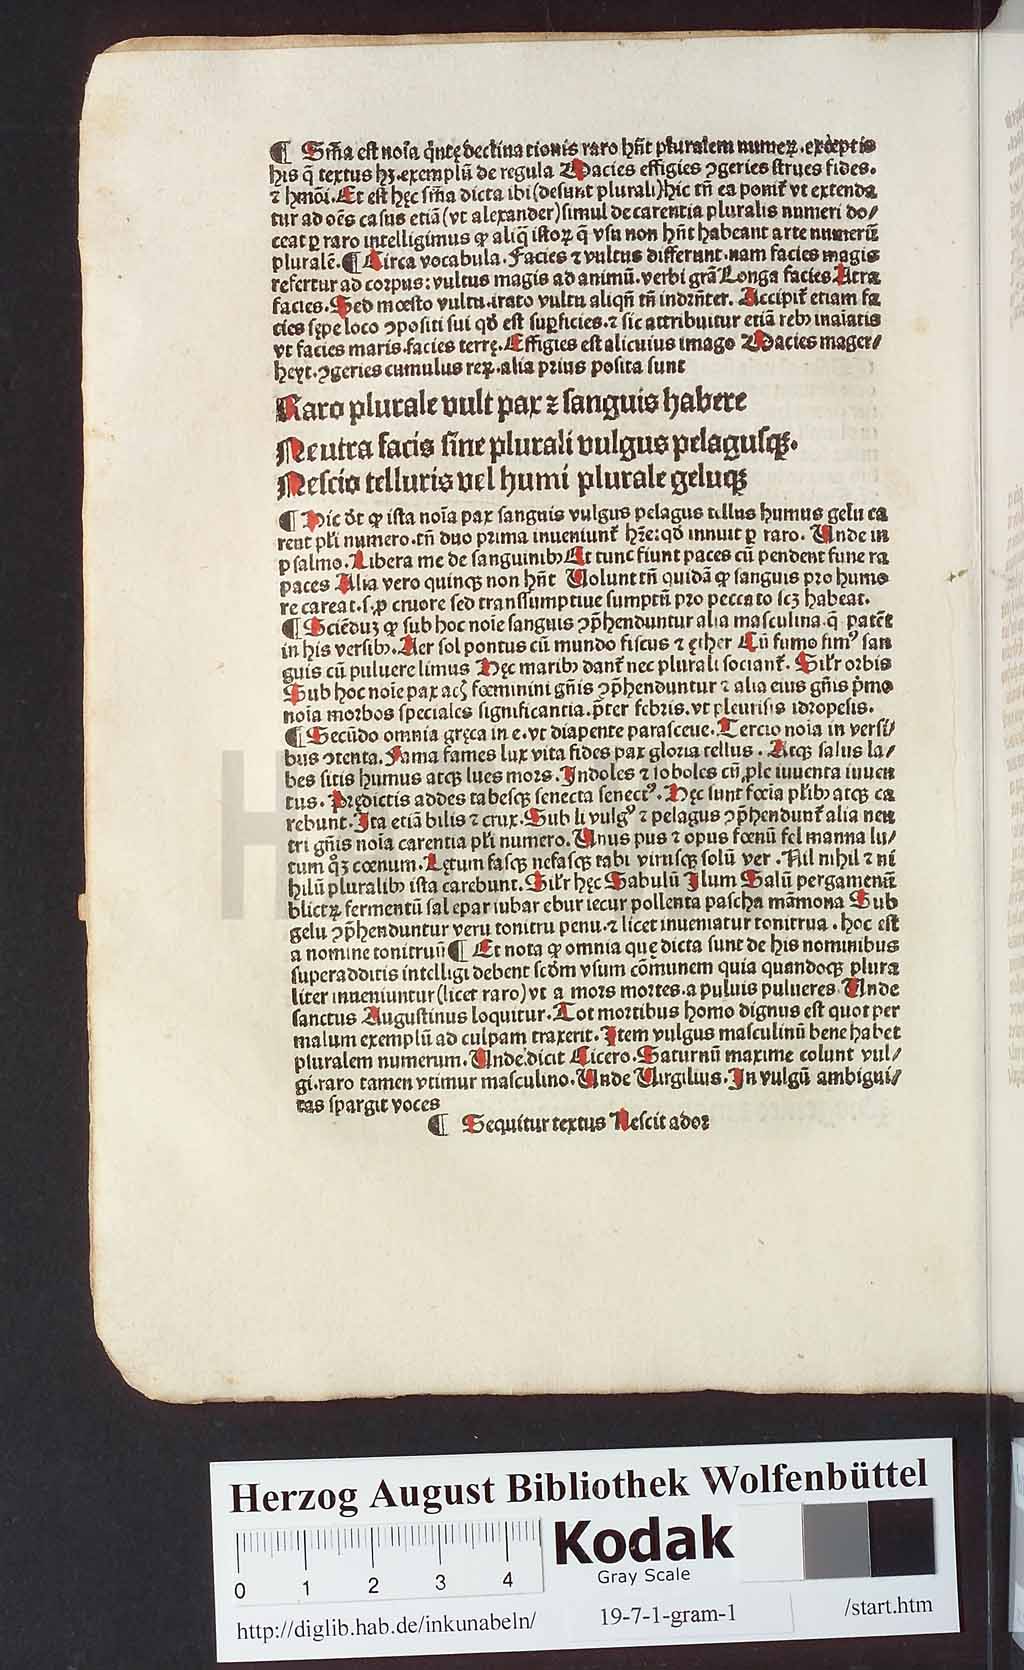 ¶ Sm̃a est noĩa q̃ntę declinationis raro hñt pluralem numeꝝ. exceptis
his q̃ textus hꝫ. exemplũ de regula Macies effigies ꝯgeries strues fides.
⁊ hmõi. Et est hęc sm̃a dicta ibi (desunt plurali) hic tñ ea ponit᷑ vt extenda
tur ad oẽs casus etiã (vt alexander) simul de carentia pluralis numeri do/
ceat ꝑ raro intelligimus ꝙ aliq̃ istoꝝ q̃ vsu non hñt habeant arte numerũ
pluralẽ. ¶ Circa vocabula. Facies ⁊ vultus differunt. nam facies magis
refertur ad corpus: vultus magis ad animũ. verbi grã Longa facies. Atra
facies. Sed mœsto vultu. irato vultu aliqñ tñ indrñter. Accipit᷑ etiam fa
cies sępe loco ꝯpositi sui qđ est suꝑficies. ⁊ sic attribuitur etiã rebꝰ inaĩatis
vt facies maris. facies terrę. Effigies est alicuius imago Macies mager/
heyt. ꝯgeries cumulus reꝝ. alia prius posita sunt
Raro plurale vult pax ⁊ sanguis habere
Neutra facis sine plurali vulgus pelagusqꝫ.
Nescio telluris vel humi plurale geluqꝫ
¶ Hic dt̃ ꝙ ista noĩa pax sanguis vulgus pelagus tellus humus gelu ca
rent pl̃i numero. tñ duo prima inueniunt᷑ hr̃e: qđ innuit ꝑ raro. Unde in
psalmo. Libera me de sanguinibꝰ Et tunc fiunt paces cũ pendent fune ra
paces Alia vero quinqꝫ non hñt Uolunt tñ quidã ꝙ sanguis pro humo
re careat. s. ꝓ cruore sed transsumptiue sumptũ pro peccato scꝫ habeat.
¶ Sciẽduꝫ ꝙ sub hoc noĩe sanguis ꝯp̃henduntur alia masculina. q̃ patẽt
in his versibꝰ. Aer sol pontus cũ mundo fiscus ⁊ ęther Cũ fumo fimꝰ san
guis cũ puluere limus Hęc maribꝰ dant᷑ nec plurali sociant᷑. Sil̃r orbis
Sub hoc noĩe pax acꝫ fœminini gñis ꝯp̃henduntur ⁊ alia eius gñis p̃mo
noĩa morbos speciales significantia. p̃ter febris. vt pleurisis idropesis.
¶ Secũdo omnia gręca in e. vt diapente parasceue. Tercio noĩa in versi/
bus ꝯtenta. Fama fames lux vita fides pax gloria tellus. Atqꝫ salus la/
bes sitis humus atqꝫ lues mors. Indoles ⁊ soboles cũ ꝓle iuuenta iuuen
tus. Prędictis addes tabesqꝫ senecta senectꝰ. Hęc sunt fœĩa pl̃ibꝰ atqꝫ ca
rebunt. Ita etiã bilis ⁊ crux. Sub li vulgꝰ ⁊ pelagus ꝯp̃hendunt᷑ alia neu
tri gñis noĩa carentia pl̃i numero. Unus pus ⁊ opus fœnũ fel manna lu/
tum q̃ꝫ cœnum. Lętum fasqꝫ nefasqꝫ tabi virusqꝫ solũ ver. Nil nihil ⁊ ni
hilũ pluralibꝰ ista carebunt. Sil̃r hęc Sabulũ Ilum Salũ pergamenũ
blictꝝ fermentũ sal epar iubar ebur iecur pollenta pascha mãmona Sub
gelu ꝯp̃henduntur veru tonitru penu. ⁊ licet inueniatur tonitrua. hoc est
a nomine tonitruũ ¶ Et nota ꝙ omnia quę dicta sunt de his nominibus
superadditis intelligi debent scđm vsum cõmunem quia quandoqꝫ plura
liter inueniuntur (licet raro) vt a mors mortes. a puluis pulueres Unde
sanctus Augustinus loquitur. Tot mortibus homo dignus est quot per
malum exemplũ ad culpam traxerit. Item vulgus masculinũ bene habet
pluralem numerum. Unde dicit Cicero. Saturnũ maxime colunt vul/
gi. raro tamen vtimur masculino. Unde Uirgilius. In vulgũ ambigui/
tas spargit voces
¶ Sequitur textus Nescit ador
Herzog August Bibliothek Wolfenbüttel
Kodak
Gray Scale
0 1 2 3 4
http://diglib.hab.de/inkunabeln/ 19-7-1-gram-1 /start.htm